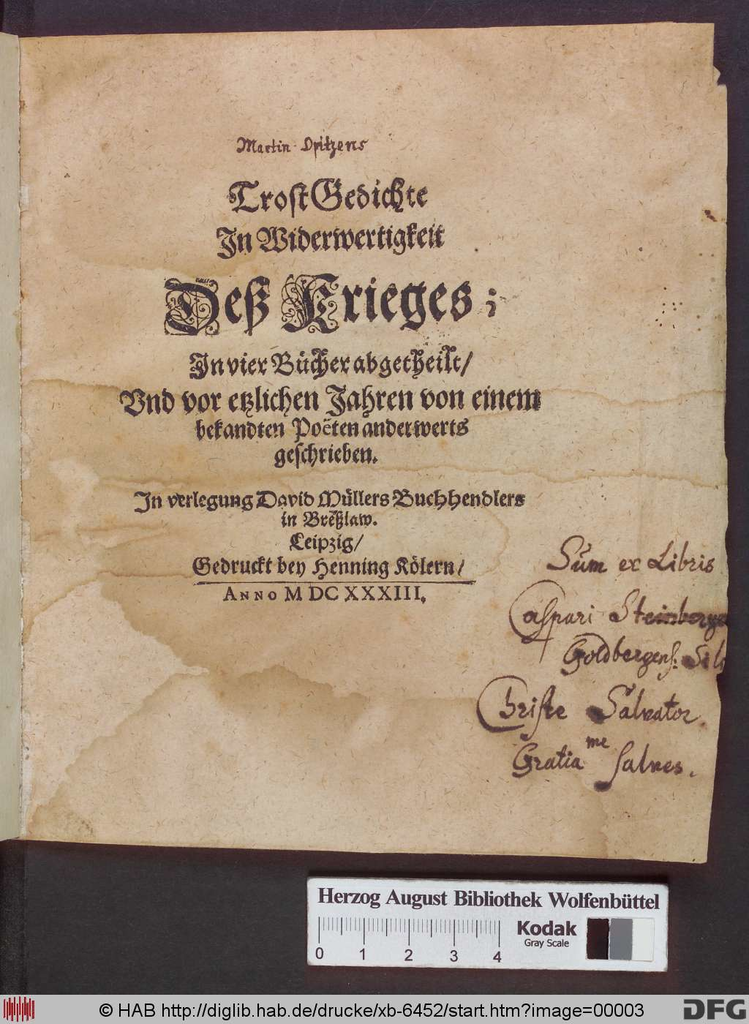 Martin Opitzens
TrostGedichte
In Widerwertigkeit
Deß Krieges;
In vier Bücher abgetheilt/
Vnd vor etzlichen Jahren von einem
bekandten Poëten anderwerts
geschrieben.
In verlegung David Müllers Buchhendlers
in Breßlaw.
Leipzig/
Gedruckt bey Henning Kölern/
ANNO M DC XXXIII.
Sum ex Libris
Caspari Steinberge
Goldbergens: Sil
Christe Salvator
Gratia me salves.
Herzog August Bibliothek Wolfenbüttel
Kodak
Gray Scale
0 1 2 3 4
© HAB http://diglib.hab.de/drucke/xb-6452/start.htm?image=00003
DFG